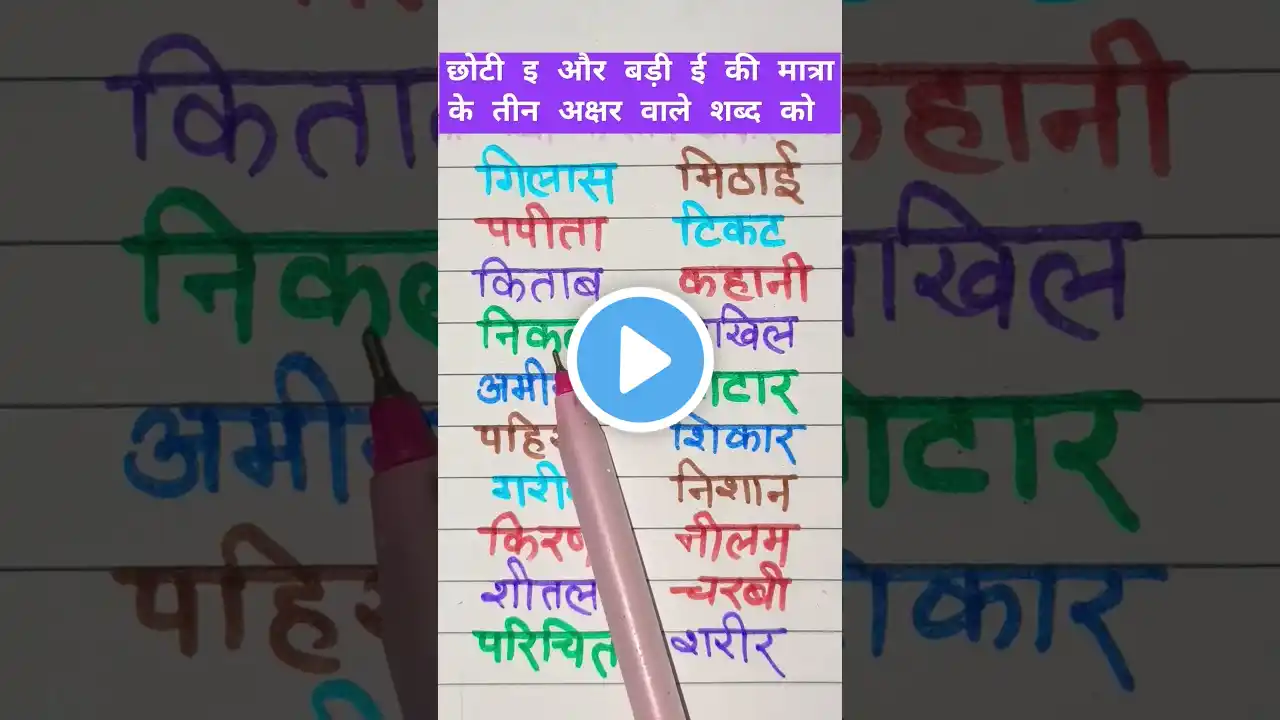 छोटी इ और बड़ी ई की मात्रा
के तीन अक्षर वाले शब्द को
गिलास मिठाई
पपीता टिकट
किताब कहानी
शिकार
निशान
किरण नीलम
शीतल चरबी
परिचित शरीर